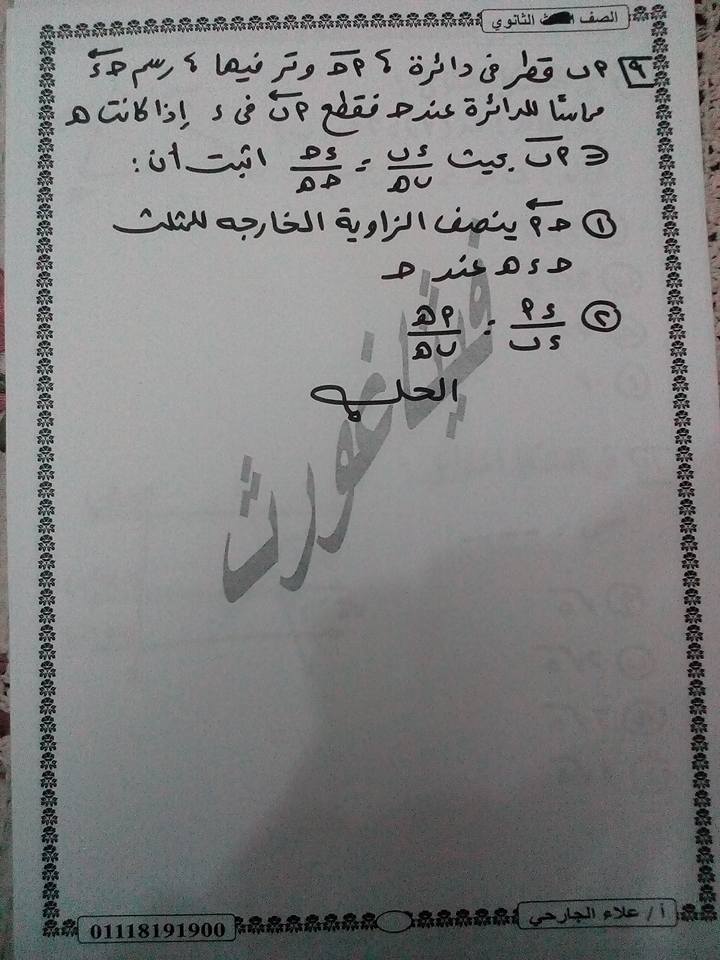 الصف الثانوي
٩ ٢ب قطر فى دائرة ، ٢حـ وتر فيها ، رسم حـ ء
مماسًا للدائرة عند حـ فقطع ٢ب فى ء إذا كانت هـ
∋ ٢ب بحيث ءب/بهـ = ءحـ/حـهـ اثبت أن :
① حـ٢ ينصف الزاوية الخارجه للمثلث
حـ ء هـ عند حـ
② ء٢/ءب = ٢هـ/بهـ
الحل
فيثاغورث
أ / علاء الجارحي
01118191900